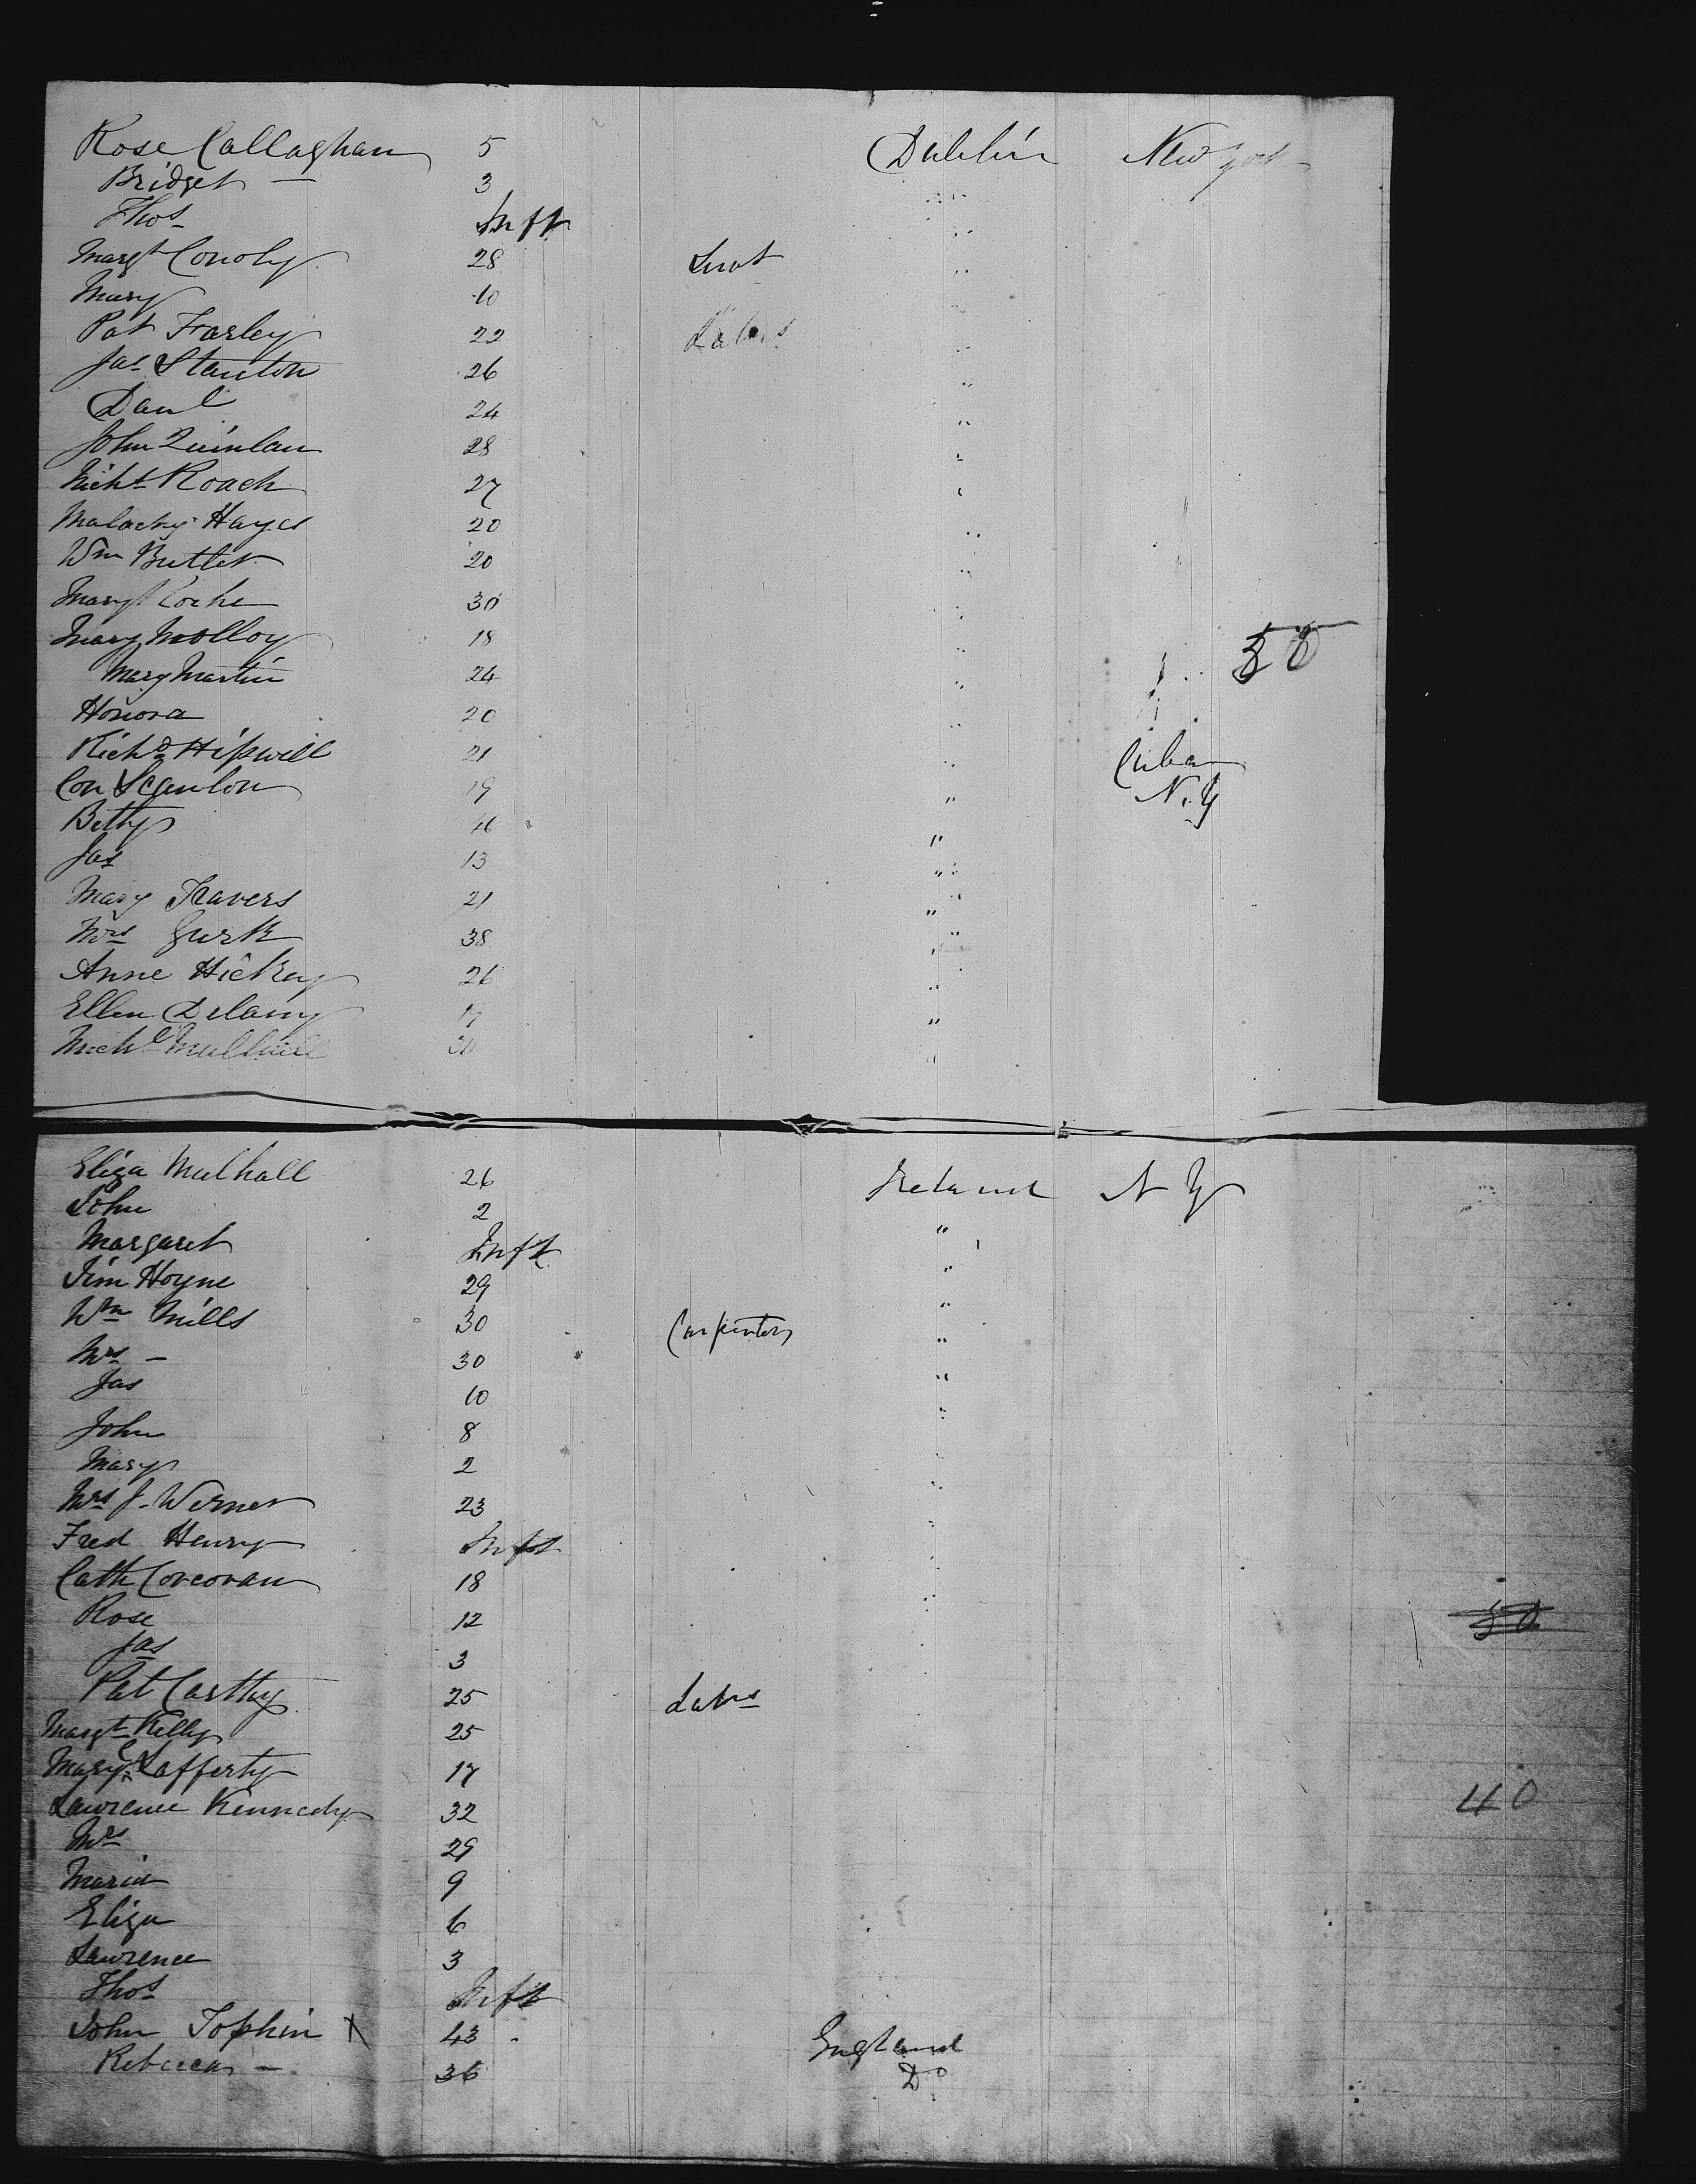 Rose Callaghan 5 Dublin New York
Bridget — 3 "
Thos Inft "
Margt Conoly 28 "
Mary 10 "
Pat Farley 22 Labrs "
Jas Stanton 26 "
Danl 24 "
John Quinlan 28 "
Richd Roach 27 "
Malachy Hayes 20 "
Wm Butler 20 "
Margt 30 "
Mary Molloy 18 "
Mary Martin 24 "
50
Honora 20 "
Richd Hipwell 21 " Cuba
Con Scanlon 19 " N.Y
Betty 46 "
Jas 13 "
Mary Travers 21 "
Mrs Gurk 38 "
Anne Hickey 26 "
Ellen Delany 19 "
Michl Mulhall 30 "
Eliza Mulhall 26 Ireland N Y
John 2 "
Margaret Inft "
Jim Hoyne 29 "
Wm Mills 30 Carpenter "
Mrs — 30 "
Jas 10 "
John 8 "
Mary 2 "
Mrs J. Werner 23 "
Fred Henry Inft "
Cath Corcoran 18 "
Rose 12 50
Jas 3
Pat Carthy 25 Labrs
Margt Kelly 25
Mary Lafferty 17
Lawrence Kennedy 32 40
Mrs 29
Maria 9
Eliza 6
Lawrence 3
Thos Inft
John Tophin X 43 England
Rebecca — 36 Do